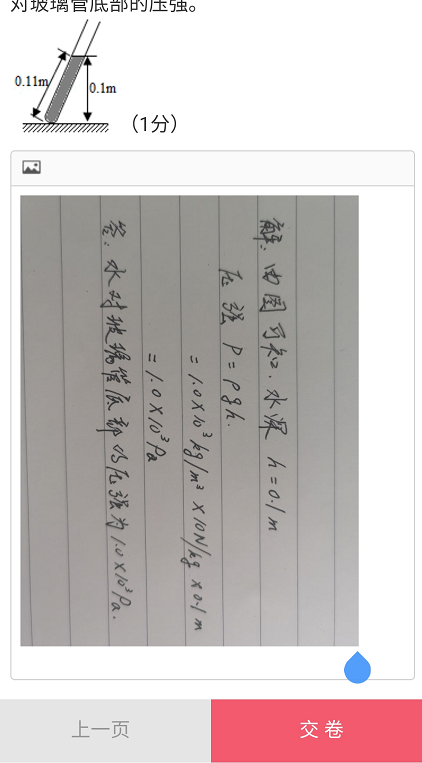 对玻璃管底部的压强。
0.11m
0.1m
（1分）
解：由图可知．水深 h=0.1m
压强 P=ρgh．
=1.0×10³kg/m³×10N/kg×0.1m
=1.0×10³Pa
答：水对玻璃管底部的压强为1.0×10³Pa.
上一页
交 卷